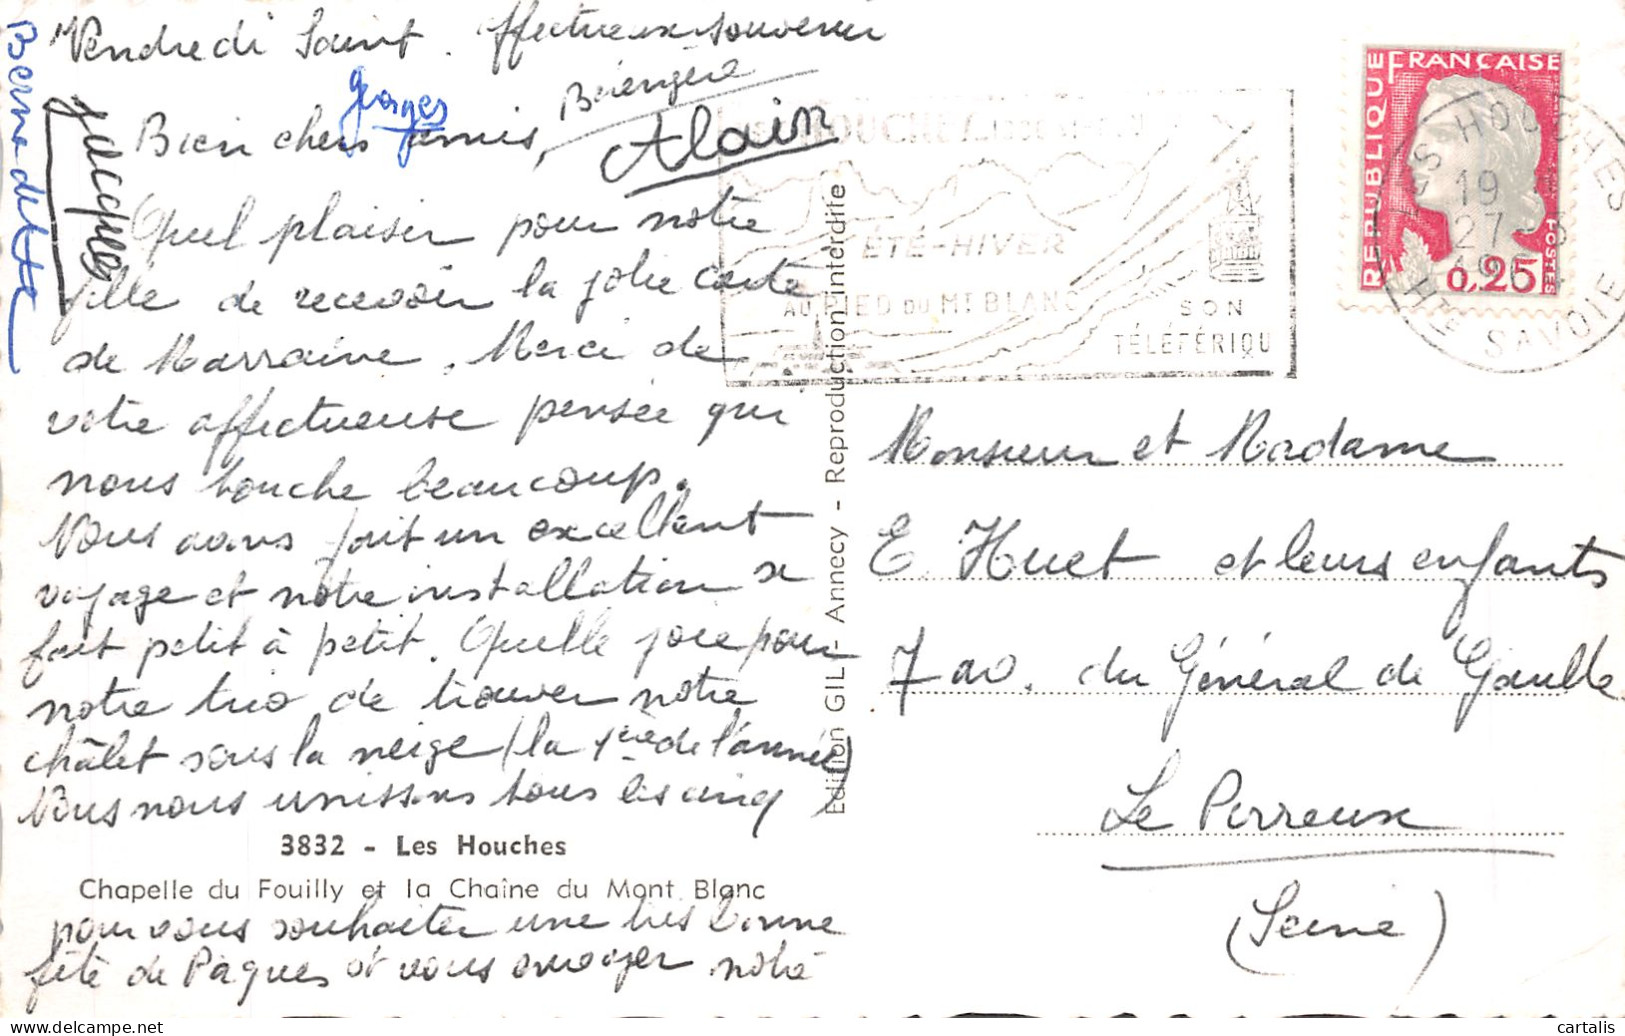 Vendredi Saint. Affectueux souvenir
Bernadette
Jacques
Georges
Bérengère
Alain
Bien chers amis,
Quel plaisir pour notre
fille de recevoir la jolie carte
de Marraine. Merci de
votre affectueuse pensée qui
nous touche beaucoup.
Nous avons fait un excellent
voyage et notre installation se
fait petit à petit. Quelle joie pour
notre trio de trouver notre
châlet sous la neige (la 1ère de l'année)
Nous nous unissons tous les cinq
3832 - Les Houches
Chapelle du Fouilly et la Chaîne du Mont Blanc
pour vous souhaiter une très bonne
fête de Pâques et vous envoyer notre
Edition GIL - Annecy - Reproduction interdite
ÉTÉ-HIVER
AU PIED DU MT BLANC
SON
TÉLÉFÉRIQU
REPUBLIQUE FRANÇAISE
POSTES
0,25
LES HOUCHES
19
27-3
HTE SAVOIE
Monsieur et Madame
E. Huet et leurs enfants
7 av. du Général de Gaulle
Le Perreux
(Seine)
cartalis
www.delcampe.net